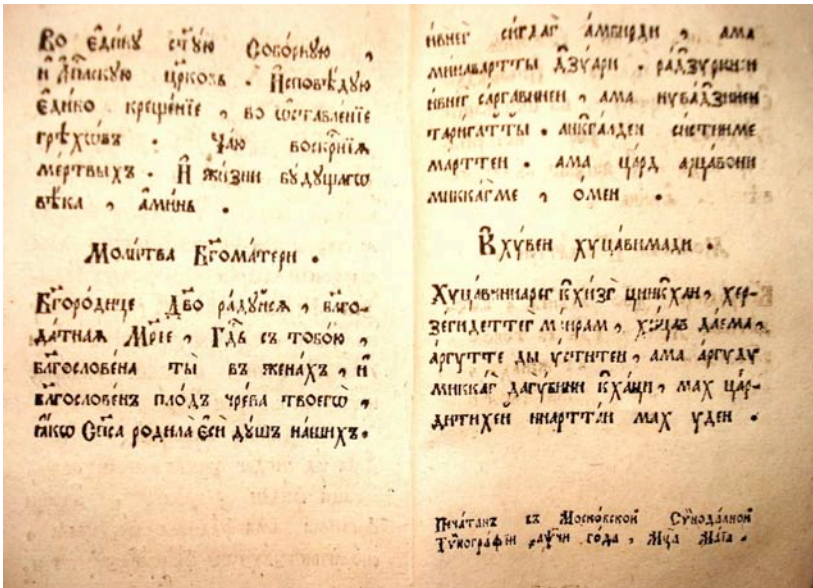 Во є҆ди́нꙋ ст҃ꙋ́ю Собо́рнꙋю ,
и҆ А҆пⷭ҇лскꙋю цр҃ковь . И҆сповѣ́дꙋю
є҆ди́но креще́нїе , во ѡ҆ставле́нїе
грѣхѡ́въ . Ча́ю воскрⷭ҇нїѧ
ме́ртвыхъ . И҆ жи́зни бꙋ́дꙋщагѡ
вѣ́ка , а҆ми́нь .
Моли́тва Бг҃ома́тери .
Бг҃оро́дице Дв҃о ра́дꙋйсѧ , бл҃го-
да́тнаѧ Мр҃іе , Гдⷭ҇ь съ тобо́ю ,
бл҃гослове́на ты̀ въ жена́хъ , и҆
бл҃гослове́нъ пло́дъ чре́ва твоегѡ̀ ,
ꙗ҆́кѡ Сп҃са родила̀ є҆сѝ дꙋ́шъ на́шихъ .
сигдаг амбирди , ама
минавартты дзуари .
ивнег саргавинен , ама нувадзинен
. анкгалден систниме
марттен . ама цард арцавони
миккагме , омен .
Кхувен хуцавимади .
кхизг цинкхан , хер-
зегидеттег мирам , хуцав даема ,
аргутте ды уститен , ама аргуду
миккаг дагубини кхаци , мах цар-
дитихей ниарттан мах уден .
Печа́танъ въ Моско́вской Сѵнода́лной
Тѵпогра́фїи ҂аѱчи го́да , Мцⷭ҇а Ма́їа .